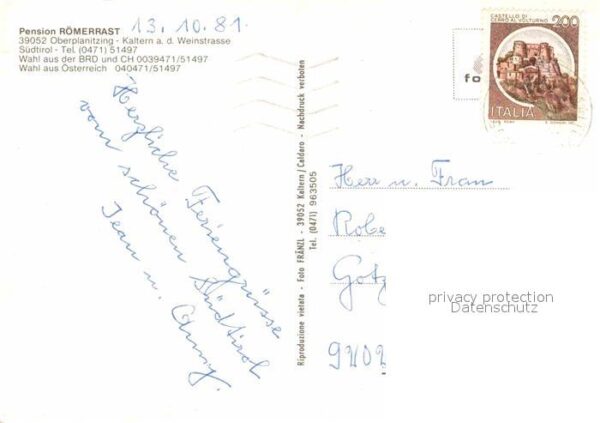 Pension RÖMERRAST 13.10.81
39052 Oberplanitzing - Kaltern a. d. Weinstrasse
Südtirol - Tel. (0471) 51497
Wahl aus der BRD und CH 0039471/51497
Wahl aus Österreich 040471/51497
Herzliche Feriengrüsse
vom schönen Südtirol
Jean u.
Riproduzione vietata - Foto FRÄNZL - 39052 Kaltern/Caldaro - Nachdruck verboten
Tel. (0471) 963505
CASTELLO DI
CERRO AL VOLTURNO
200
ITALIA
fo
Herr u. Frau
Robe
Gotz
9202
privacy protection
Datenschutz